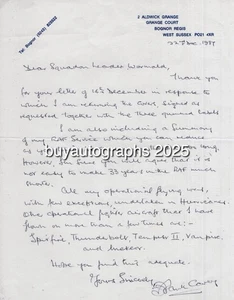 2 ALDWICK GRANGE
GRANGE COURT
BOGNOR REGIS
WEST SUSSEX PO21 4RR
22 Dec. 1989
Dear Squadron Leader
Thank you
for your letter of 16th December in response to
which I am returning the cover, signed as
requested together with the three gummed labels
I am also including a Summary
of my RAF Service which you can
buyautographs 2025
However I'm sure you will agree that it is not
easy to make 33 years in the RAF much
shorter.
All my operational flying was,
with few exceptions, undertaken in Hurricanes.
Other operational fighter aircraft that I have
flown on more than a few times are:-
Spitfire, Thunderbolt, Tempest II, Vampire,
and
Hope you find this adequate.
Yours Sincerely